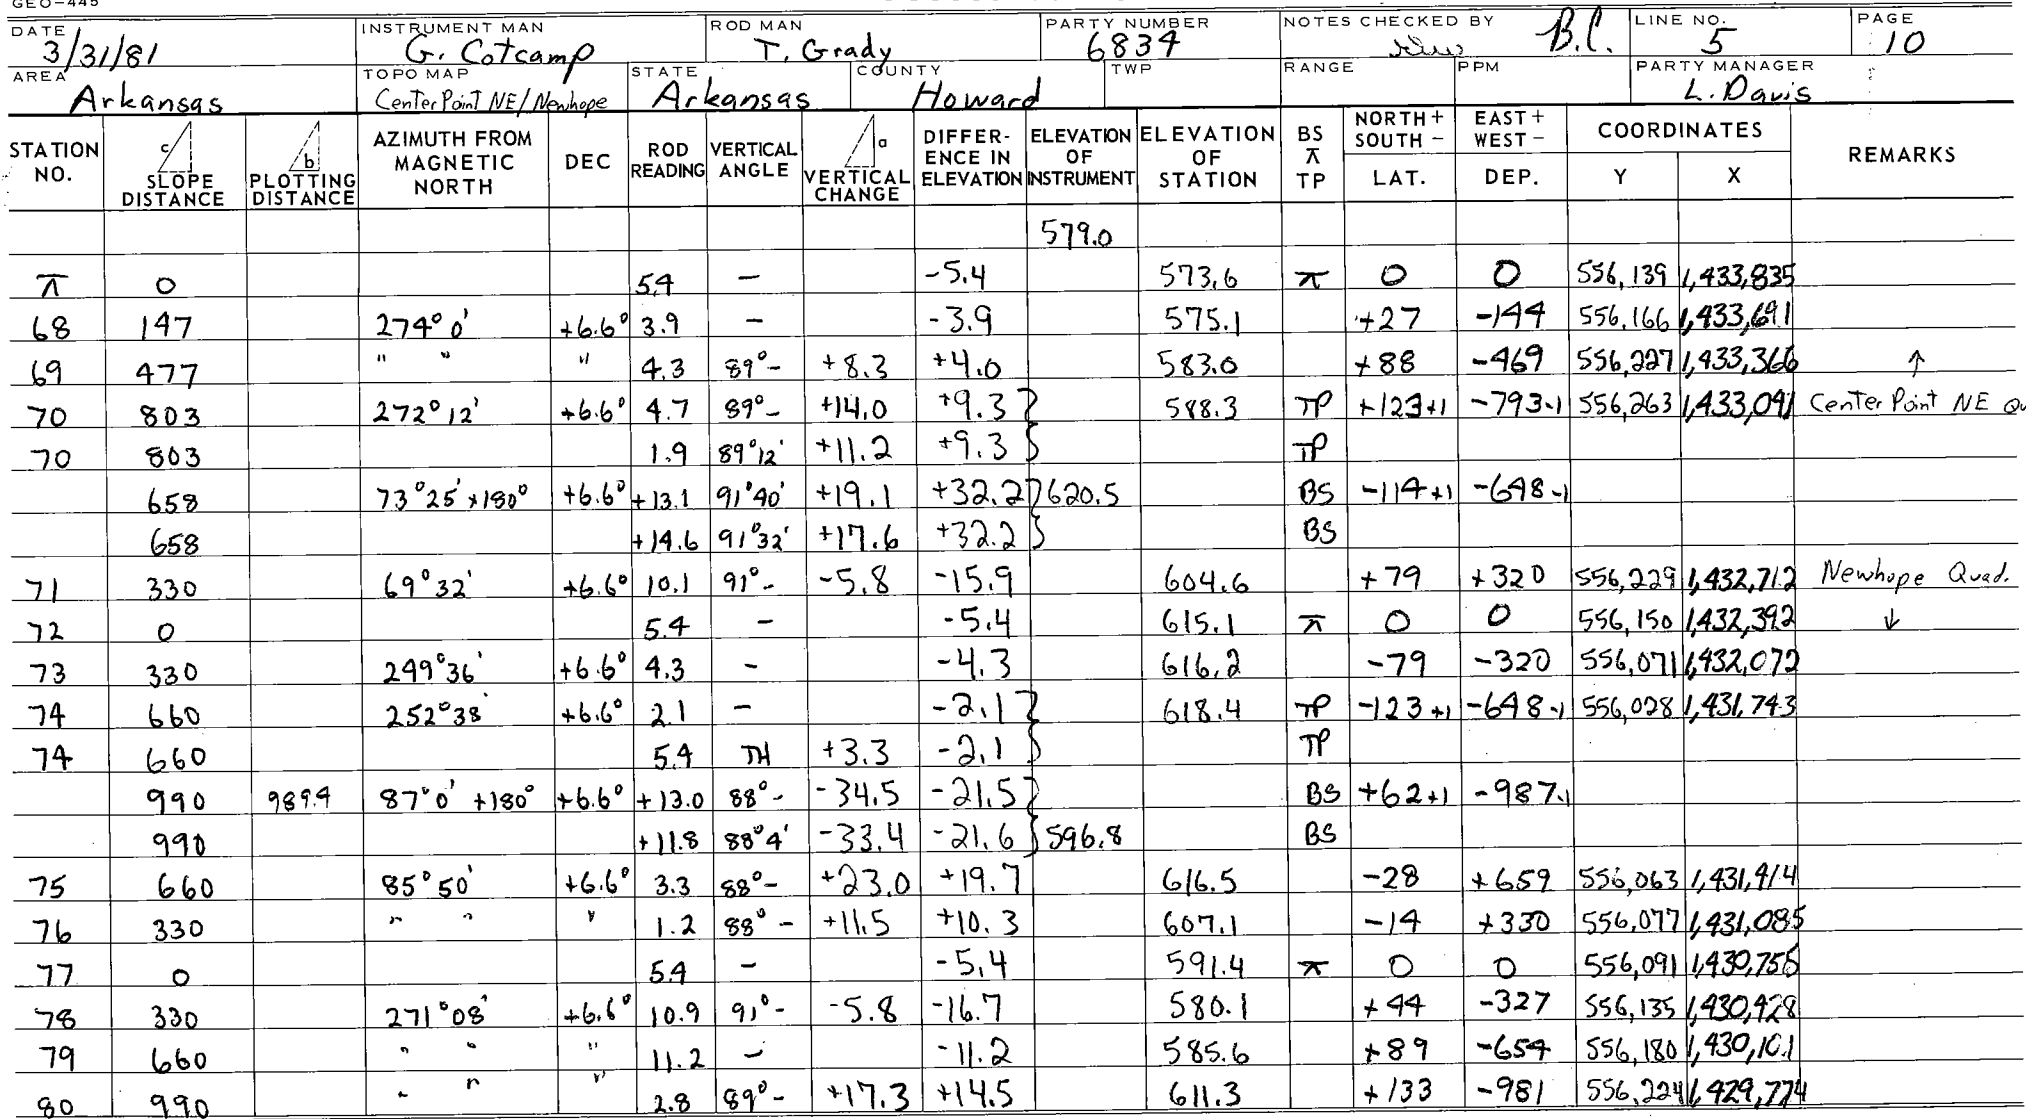 GEO-445
DATE 3/31/81 INSTRUMENT MAN G. Cotcamp ROD MAN T. Grady PARTY NUMBER 6834 NOTES CHECKED BY B.C. LINE NO. 5 PAGE 10
AREA Arkansas TOPO MAP Center Point NE/Newhope STATE Arkansas COUNTY Howard TWP RANGE PPM PARTY MANAGER L. Davis
STATION NO. c SLOPE DISTANCE b PLOTTING DISTANCE AZIMUTH FROM MAGNETIC NORTH DEC ROD READING VERTICAL ANGLE a VERTICAL CHANGE DIFFER-ENCE IN ELEVATION ELEVATION OF INSTRUMENT ELEVATION OF STATION BS ⊼ TP NORTH + SOUTH - LAT. EAST + WEST - DEP. COORDINATES Y X REMARKS
579.0
⊼ 0 5.4 - -5.4 573.6 ⊼ 0 0 556,139 1,433,835
68 147 274° 0' +6.6° 3.9 - -3.9 575.1 +27 -144 556,166 1,433,691
69 477 " " " 4.3 89°- +8.3 +4.0 583.0 +88 -469 556,227 1,433,366 ↑
70 803 272° 12' +6.6° 4.7 89°- +14.0 +9.3 588.3 TP +123+1 -793-1 556,263 1,433,041 Center Point NE Qu
70 803 1.9 89°12' +11.2 +9.3 TP
658 73°25' +180° +6.6° +13.1 91°40' +19.1 +32.2 620.5 BS -114+1 -648-1
658 +14.6 91°32' +17.6 +32.2 BS
71 330 69°32' +6.6° 10.1 91°- -5.8 -15.9 604.6 +79 +320 556,229 1,432,712 Newhope Quad.
72 0 5.4 - -5.4 615.1 ⊼ 0 0 556,150 1,432,392 ↓
73 330 249°36' +6.6° 4.3 - -4.3 616.2 -79 -320 556,071 1,432,072
74 660 252°38' +6.6° 2.1 - -2.1 618.4 TP -123+1 -648-1 556,028 1,431,743
74 660 5.4 TH +3.3 -2.1 TP
990 989.4 87°0' +180° +6.6° +13.0 88°- -34.5 -21.5 BS +62+1 -987-1
990 +11.8 88°4' -33.4 -21.6 596.8 BS
75 660 85°50' +6.6° 3.3 88°- +23.0 +19.7 616.5 -28 +659 556,063 1,431,414
76 330 " " " 1.2 88°- +11.5 +10.3 607.1 -14 +330 556,077 1,431,085
77 0 5.4 - -5.4 591.4 ⊼ 0 0 556,091 1,430,755
78 330 271°08' +6.6° 10.9 91°- -5.8 -16.7 580.1 +44 -327 556,135 1,430,428
79 660 " " " 11.2 - -11.2 585.6 +89 -654 556,180 1,430,101
80 990 " " " 2.8 89°- +17.3 +14.5 611.3 +133 -981 556,224 1,429,774